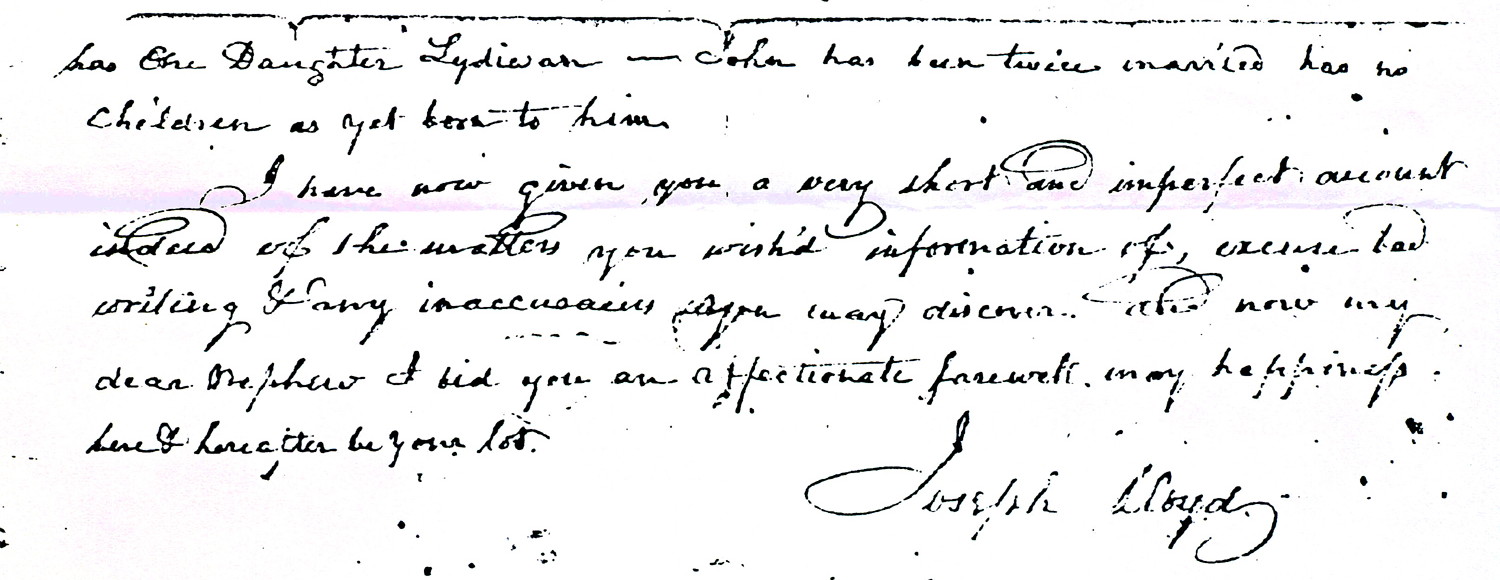 has One Daughter Lydiaan — John has been twice married has no
children as yet born to him.
I have now given you a very short and imperfect account
indeed of the matters you wish'd information of, excuse bad
writing & any inaccuracies you may discover. and now my
dear Nephew I bid you an affectionate farewell. may happiness
here & hereafter be your lot.
Joseph Lloyd